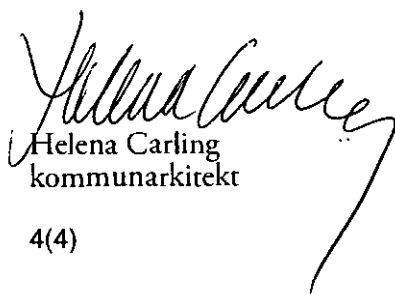 Helena Carling
Helena Carling
kommunarkitekt
4(4)